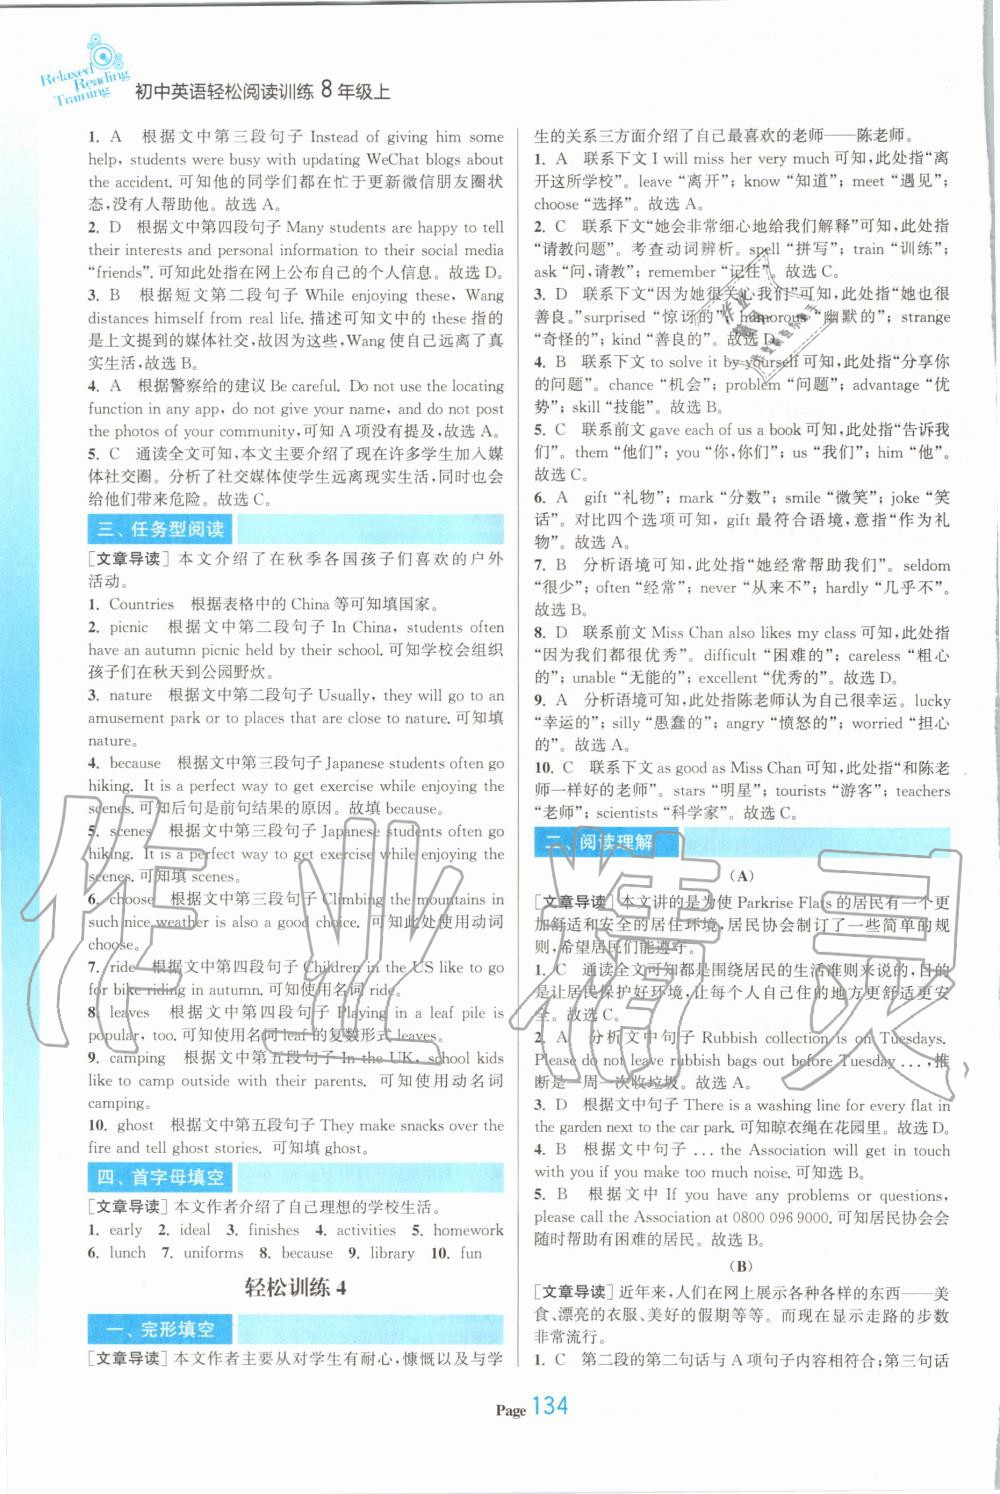 Relaxed
Reading
Training
初中英语轻松阅读训练 8 年级上
1. A 根据文中第三段句子 Instead of giving him some
help, students were busy with updating WeChat blogs about
the accident. 可知他的同学们都在忙于更新微信朋友圈状
态,没有人帮助他。故选 A。
2. D 根据文中第四段句子 Many students are happy to tell
their interests and personal information to their social media
“friends”. 可知此处指在网上公布自己的个人信息。故选 D。
3. B 根据短文第二段句子 While enjoying these, Wang
distances himself from real life. 描述可知文中的 these 指的
是上文提到的媒体社交,故因为这些,Wang 使自己远离了真
实生活,故选 B。
4. A 根据警察给的建议 Be careful. Do not use the locating
function in any app, do not give your name, and do not post
the photos of your community,可知 A 项没有提及,故选 A。
5. C 通读全文可知,本文主要介绍了现在许多学生加入媒
体社交圈。分析了社交媒体使学生远离真实的生活,也会
给他们带来危险。故选 C。
三、任务型阅读
[文章导读] 本文介绍了在秋季各国孩子们喜欢的户外
活动。
1. Countries 根据表格中的 China 等可知填国家。
2. picnic 根据文中第二段句子 In China, students often
have an autumn picnic held by their school. 可知学校会组织
孩子们在秋天到公园野炊。
3. nature 根据文中第二段句子 Usually, they will go to an
amusement park or to places that are close to nature. 可知填
nature。
4. because 根据文中第三段句子 Japanese students often go
hiking. It is a perfect way to get exercise while enjoying the
scenes. 可知后句是前句结果的原因。故填 because。
5. scenes 根据文中第三段句子 Japanese students often go
hiking. It is a perfect way to get exercise while enjoying the
scenes. 可知填 scenes。
6. choose 根据文中第三段句子 Climbing the mountains in
such nice weather is also a good choice. 可知此处使用动词
choose。
7. ride 根据文中第四段句子 Children in the US like to go
for bike riding in autumn. 可知使用名词 ride。
8. leaves 根据文中第四段句子 Playing in a leaf pile is
popular, too. 可知使用名词 leaf 的复数形式 leaves。
9. camping 根据文中第五段句子 In the UK, school kids
like to camp outside with their parents. 可知使用动名词
camping。
10. ghost 根据文中第五段句子 They make snacks over the
fire and tell ghost stories. 可知填 ghost。
四、首字母填空
[文章导读] 本文作者介绍了自己理想的学校生活。
1. early 2. ideal 3. finishes 4. activities 5. homework
6. lunch 7. uniforms 8. because 9. library 10. fun
轻松训练 4
一、完形填空
[文章导读] 本文作者主要从对学生有耐心,慷慨以及与学
生的关系三方面介绍了自己最喜欢的老师——陈老师。
1. A 联系下文 I will miss her very much 可知,此处指“离
开这所学校”。leave “离开”; know “知道”; meet “遇见”;
choose “选择”。故选 A。
2. C 联系下文“她会非常细心地给我们解释”可知,此处指
“请教问题”。考查动词辨析。spell “拼写”; train “训练”;
ask “问,请教”; remember “记住”。故选 C。
3. D 联系下文“因为她很关心我们”可知,此处指“她也很
善良。”surprised “惊讶的”; humorous “幽默的”; strange
“奇怪的”; kind “善良的”。故选 D。
4. B 联系下文 to solve it by yourself 可知,此处指“分享你
的问题”。chance “机会”; problem “问题”; advantage “优
势”; skill “技能”。故选 B。
5. C 联系前文 gave each of us a book 可知,此处指“告诉我
们”。them “他们”; you “你,你们”; us “我们”; him “他”。
故选 C。
6. A gift “礼物”; mark “分数”; smile “微笑”; joke “笑
话”。对比四个选项可知, gift 最符合语境,意指“作为礼
物”。故选 A。
7. B 分析语境可知,此处指“她经常帮助我们”。seldom
“很少”; often “经常”; never “从来不”; hardly “几乎不”。
故选 B。
8. D 联系前文 Miss Chan also likes my class 可知,此处指
“因为我们都很优秀”。difficult “困难的”; careless “粗心
的”; unable “无能的”; excellent “优秀的”。故选 D。
9. A 分析语境可知,此处指陈老师认为自己很幸运。lucky
“幸运的”; silly “愚蠢的”; angry “愤怒的”; worried “担心
的”。故选 A。
10. C 联系下文 as good as Miss Chan 可知,此处指“和陈老
师一样好的老师”。stars “明星”; tourists “游客”; teachers
“老师”; scientists “科学家”。故选 C。
二、阅读理解
(A)
[文章导读] 本文讲的是为使 Parkrise Flats 的居民有一个更
加舒适和安全的居住环境,居民协会制订了一些简单的规
则,希望居民们能遵守。
1. C 通读全文可知都是围绕居民的生活准则来说的,目的
是让居民保护好环境,让每个人自己住的地方更舒适更安
全。故选 C。
2. A 分析文中句子 Rubbish collection is on Tuesdays.
Please do not leave rubbish bags out before Tuesday ...,推
断是一周一次收垃圾。故选 A。
3. D 根据文中句子 There is a washing line for every flat in
the garden next to the car park. 可知晾衣绳在花园里。故选 D。
4. B 根据文中句子 ... the Association will get in touch
with you if you make too much noise. 可知选 B。
5. B 根据文中 If you have any problems or questions,
please call the Association at 0800 096 9000. 可知居民协会会
随时帮助有困难的居民。故选 B。
(B)
[文章导读] 近年来,人们在网上展示各种各样的东西——美
食、漂亮的衣服、美好的假期等等。而现在显示走路的步数
非常流行。
1. C 第二段的第二句话与 A 项句子内容相符合;第三句话
Page 134
作业精灵